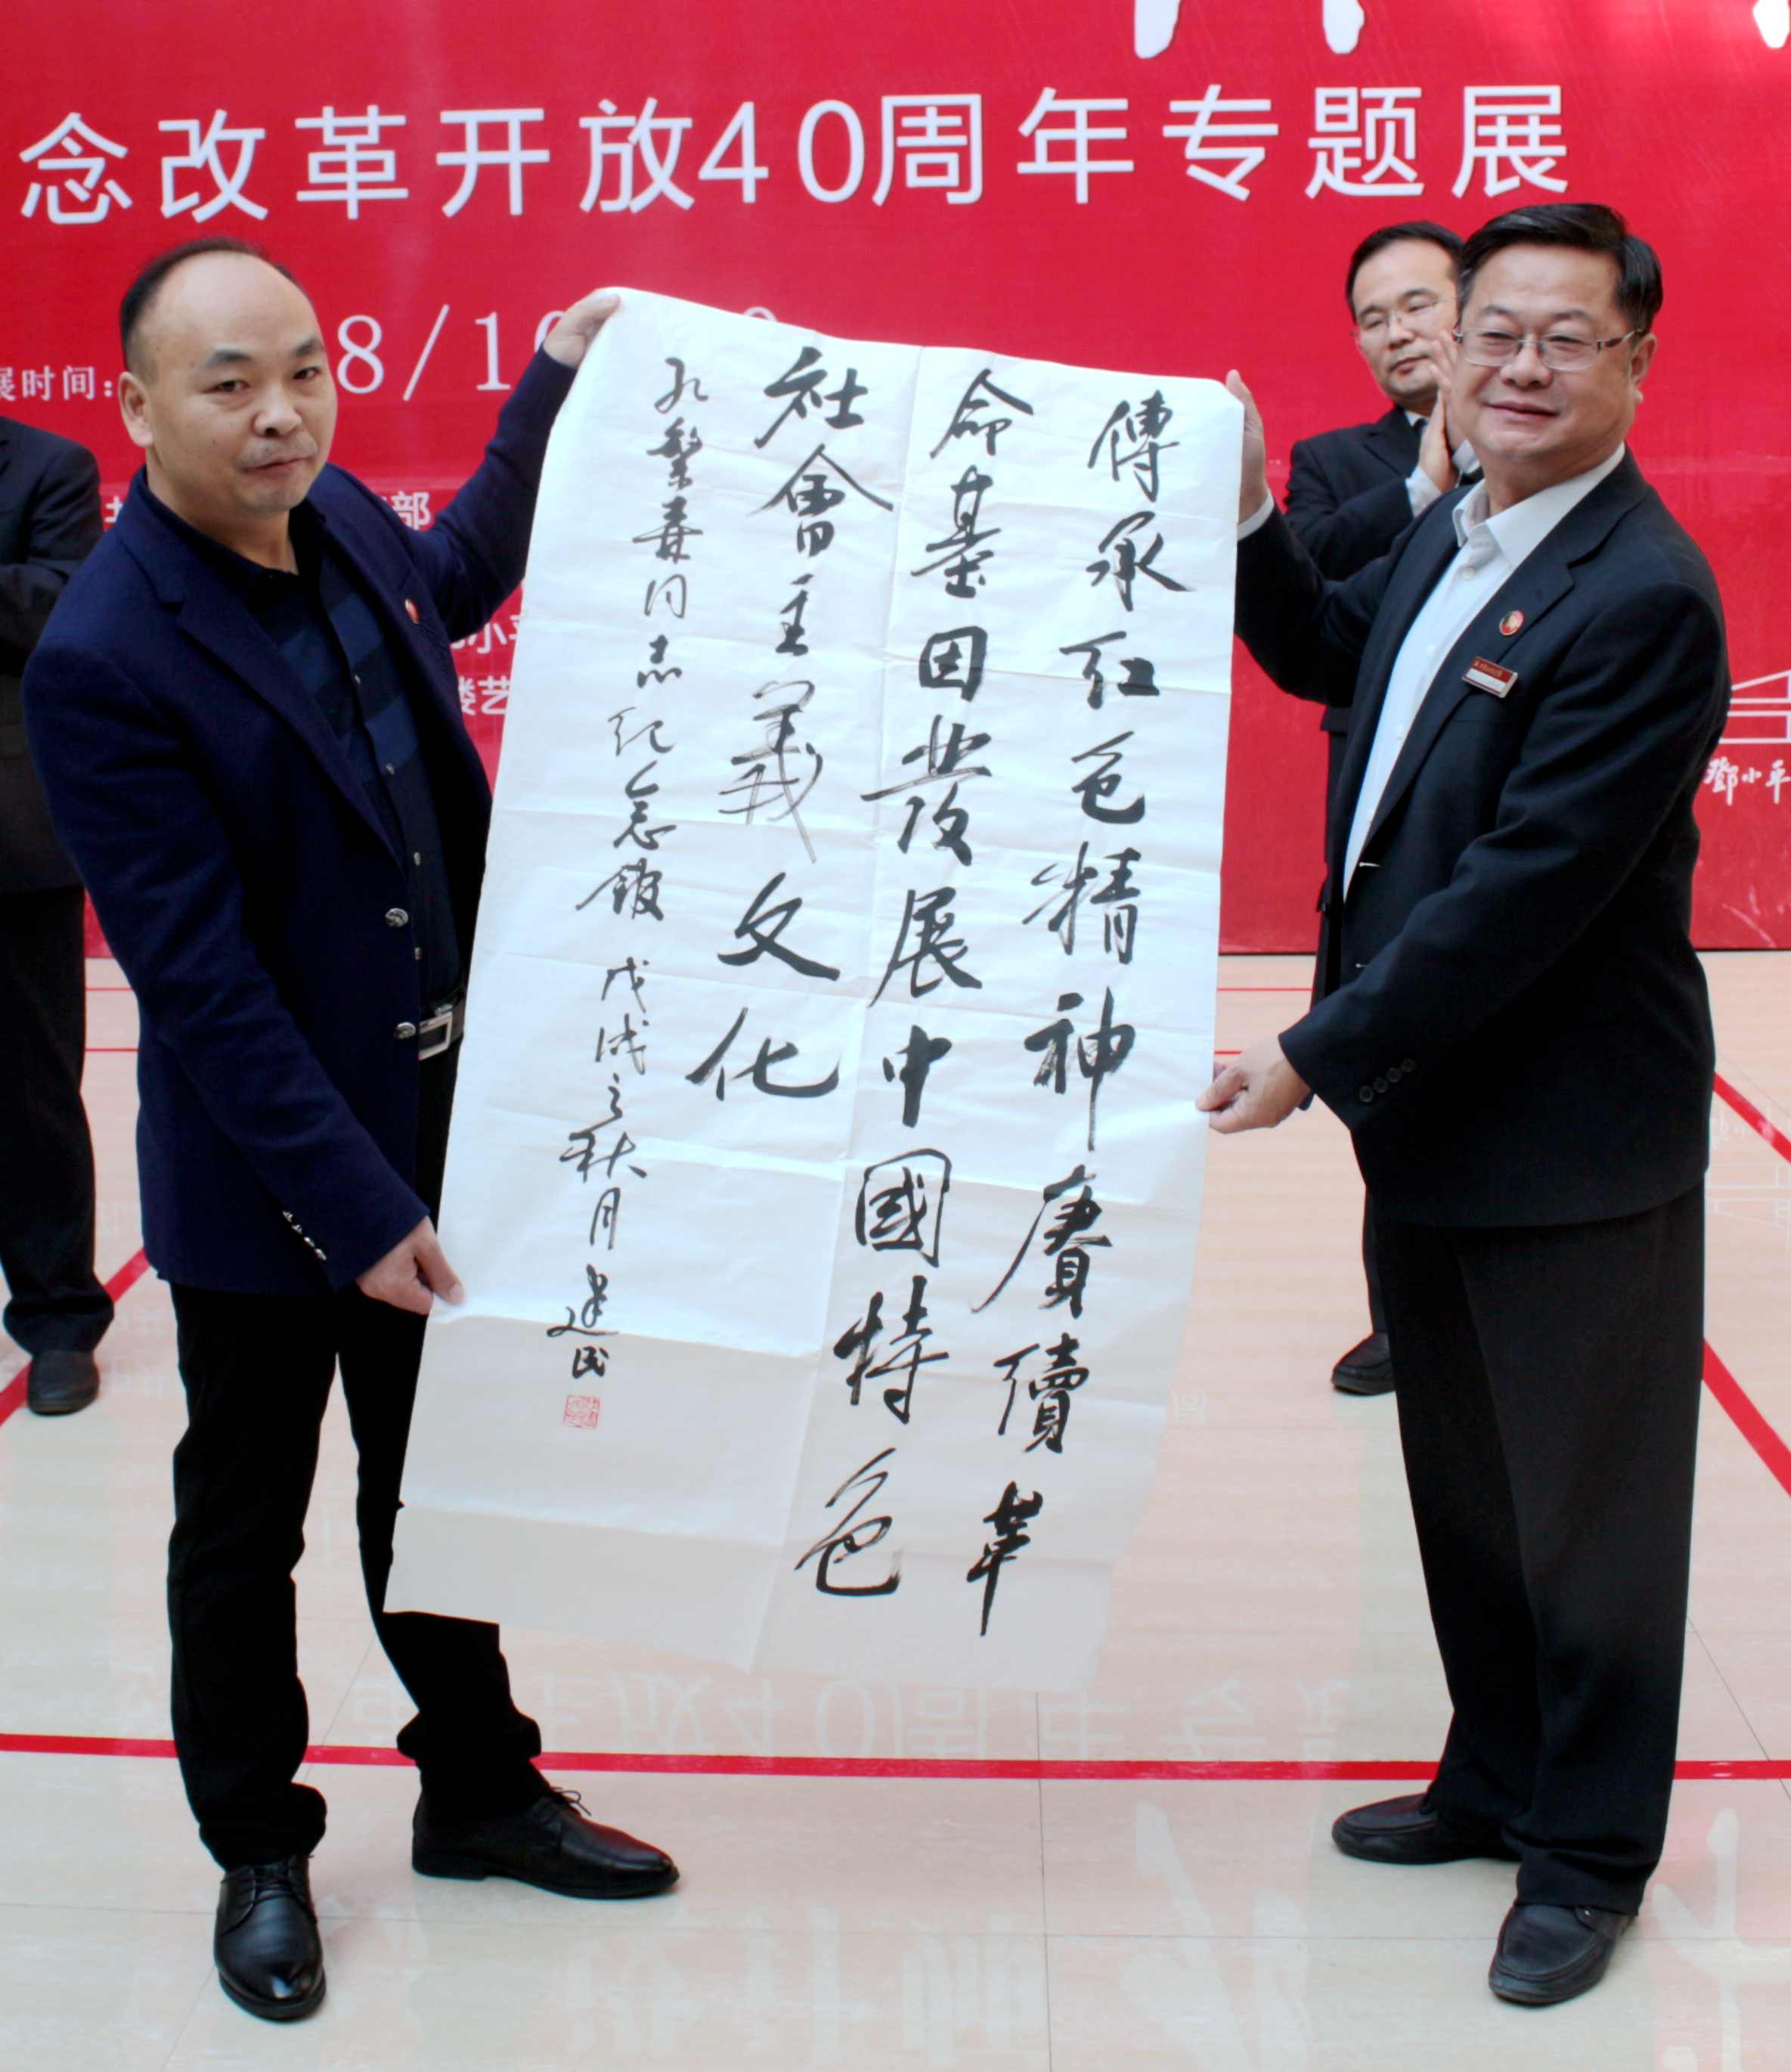 念改革开放40周年专题展
展时间:
8/10
部
小平
楼艺
鄧小平
傳承红色精神賡續革
命基因發展中國特色
社會主義文化
孔繁森同志纪念馆 戊戌之秋月 建民